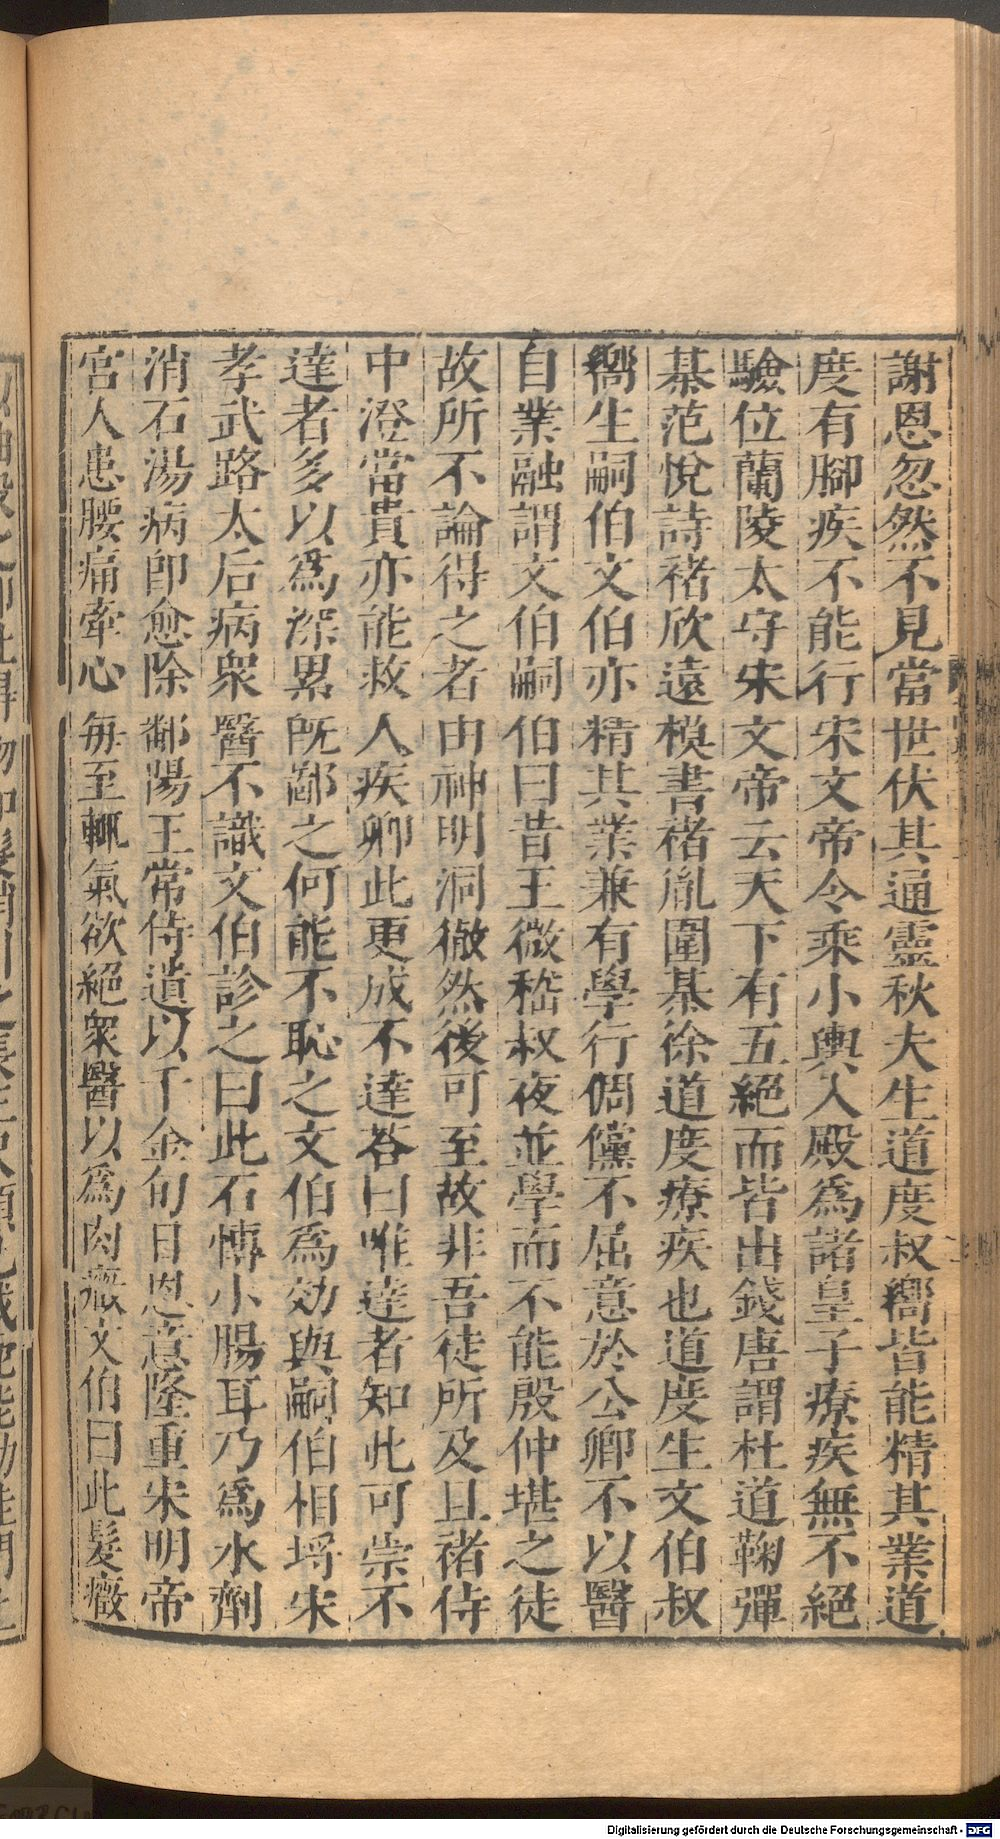 謝恩忽然不見當世伏其通靈秋夫生道度叔嚮皆能精其業道
度有腳疾不能行宋文帝令乘小輿入殿爲諸皇子療疾無不絕
驗位蘭陵太守宋文帝云天下有五絕而皆出錢唐謂杜道鞠彈
棊范悅詩褚欣遠模書褚胤圍棊徐道度療疾也道度生文伯叔
嚮生嗣伯文伯亦精其業兼有學行倜儻不屈意於公卿不以醫
自業融謂文伯嗣伯曰昔王微嵇叔夜並學而不能殷仲堪之徒
故所不論得之者由神明洞徹然後可至故非吾徒所及且褚侍
中澄當貴亦能救人疾卿此更成不達荅曰唯達者知此可崇不
達者多以爲深累旣鄙之何能不恥之文伯爲効與嗣伯相埒宋
孝武路太后病衆醫不識文伯診之曰此石慱小腸耳乃爲水劑
消石湯病卽愈除鄱陽王常侍遺以千金旬日恩意隆重宋明帝
宮人患腰痛牽心每至輒氣欲絕衆醫以爲肉癥文伯曰此髮癥
Digitalisierung gefördert durch die Deutsche Forschungsgemeinschaft - DFG